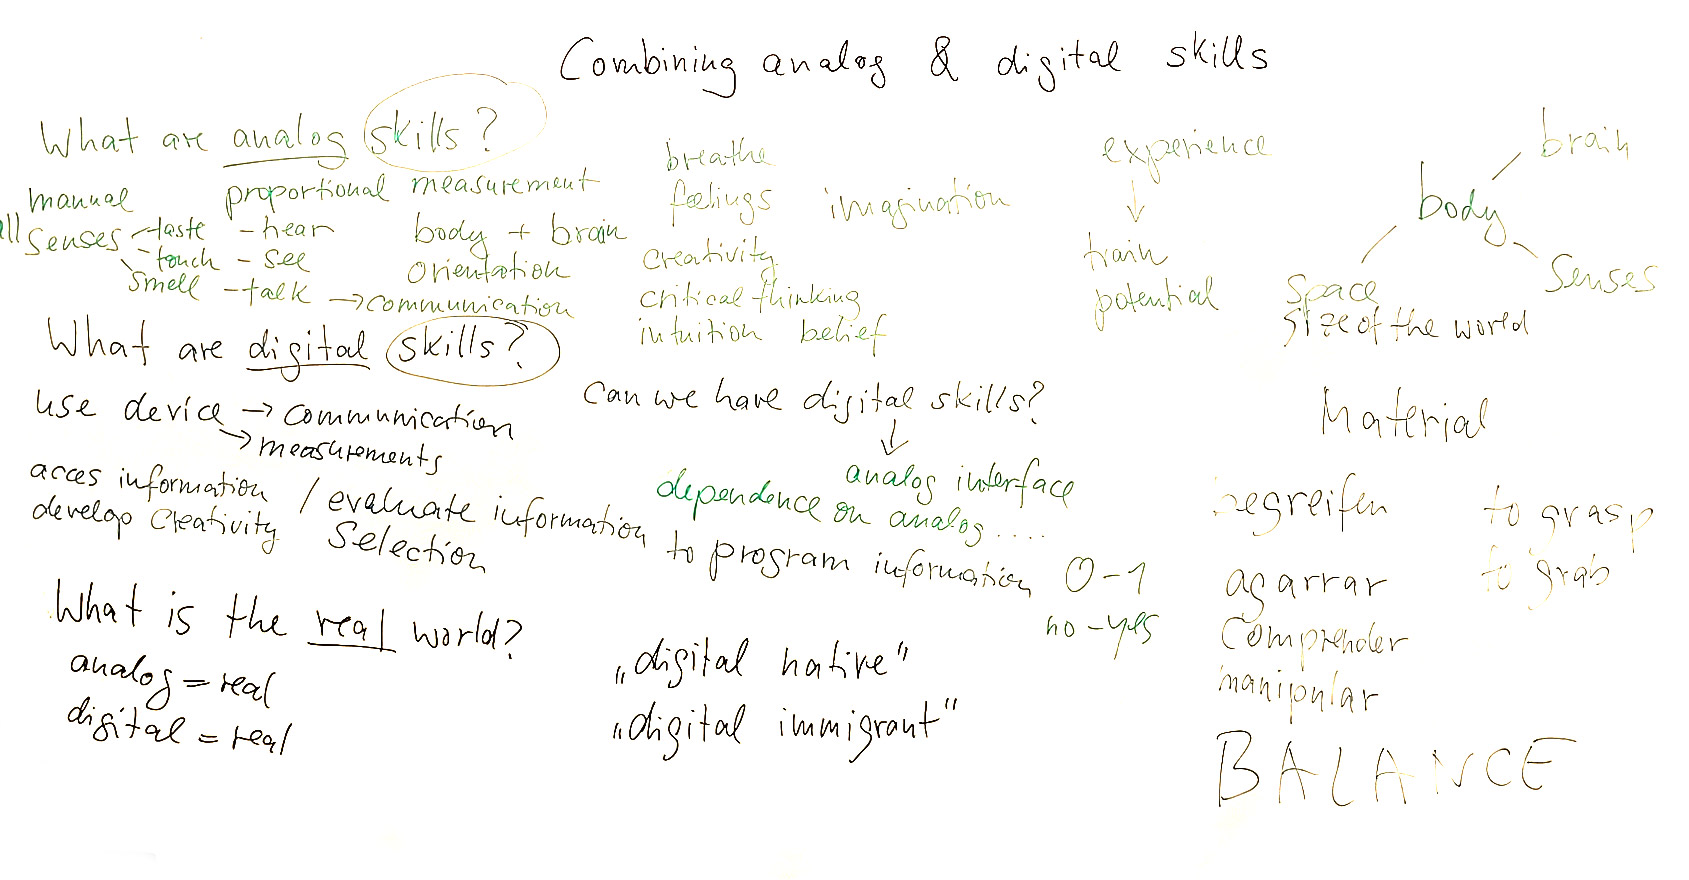 Combining analog & digital skills
What are analog skills?
manual proportional measurement
all senses - taste - hear
- touch - see
smell - talk → communication
body + brain
orientation
breathe
feelings imagination
creativity
critical thinking
intuition belief
experience
↓
train
potential
brain
body
senses
space
size of the world
What are digital skills?
use device → communication
→ measurements
acces information / evaluate information
develop creativity Selection
Can we have digital skills?
↓
analog interface
dependence on analog ....
to program information 0-1
no-yes
What is the real world?
analog = real
digital = real
„digital native"
„digital immigrant"
Material
begreifen to grasp
to grab
agarrar
comprender
manipular
BALANCE